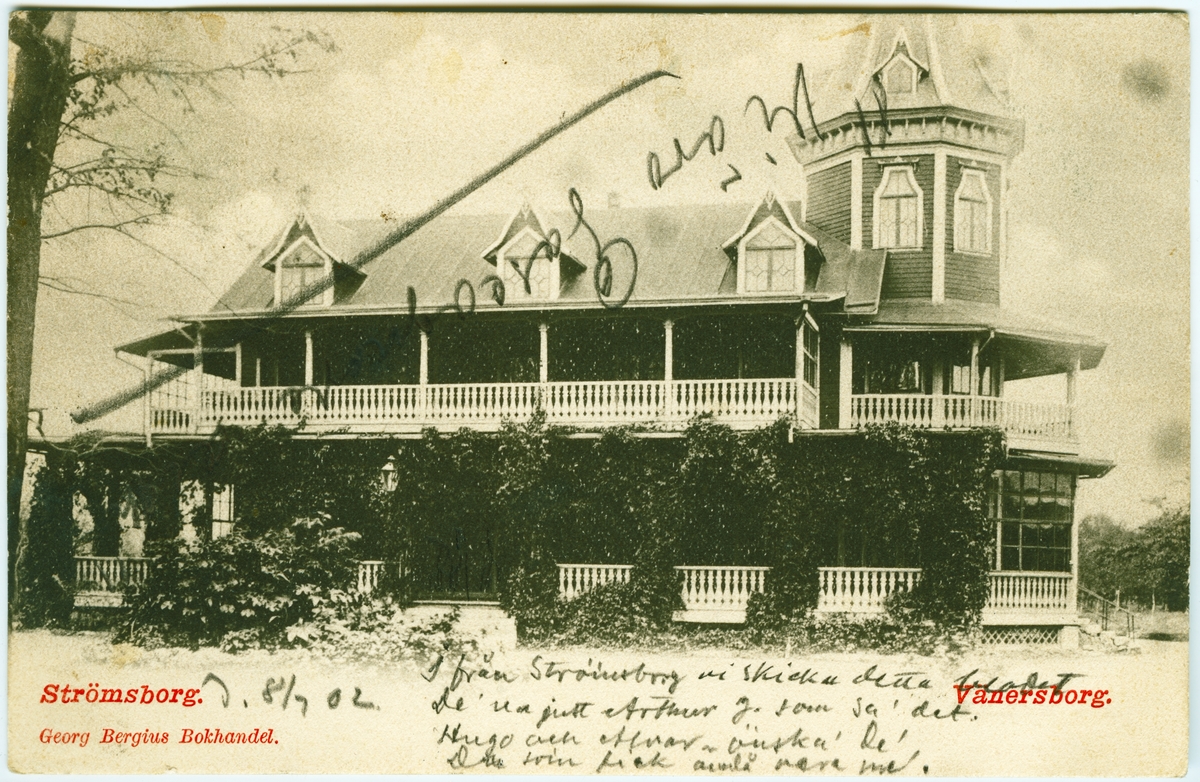 I från Strömsborg vi skicka detta bladet
Strömsborg. D. 8/7 02. Vänersborg.
De' va gutt Arthur J. som sa' det.
Georg Bergius Bokhandel.
Hugo och Alvar önska' De'
Du som fick ändå vara me'.